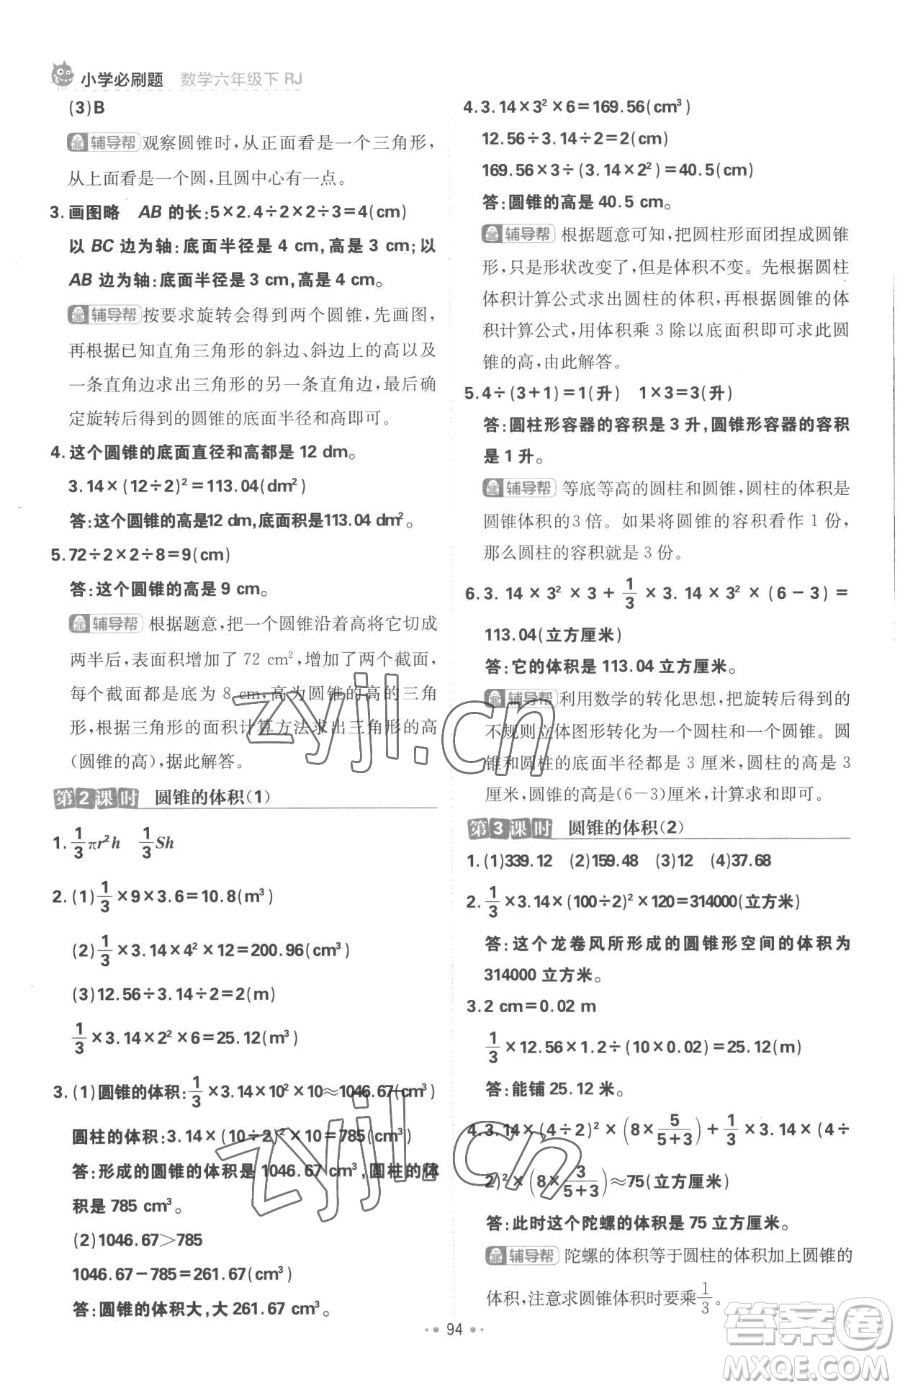 小学必刷题 数学六年级下 RJ
(3)B
辅导帮 观察圆锥时,从正面看是一个三角形,
从上面看是一个圆,且圆中心有一点。
3.画图略 AB 的长:5×2.4÷2×2÷3=4(cm)
以 BC 边为轴:底面半径是 4 cm,高是 3 cm;以
AB 边为轴:底面半径是 3 cm,高是 4 cm。
辅导帮 按要求旋转会得到两个圆锥,先画图,
再根据已知直角三角形的斜边、斜边上的高以及
一条直角边求出三角形的另一条直角边,最后确
定旋转后得到的圆锥的底面半径和高即可。
4.这个圆锥的底面直径和高都是 12 dm。
3.14×(12÷2)²=113.04(dm²)
答:这个圆锥的高是12 dm,底面积是113.04 dm²。
5.72÷2×2÷8=9(cm)
答:这个圆锥的高是 9 cm。
辅导帮 根据题意,把一个圆锥沿着高将它切成
两半后,表面积增加了 72 cm²,增加了两个截面,
每个截面都是底为 8 cm,高为圆锥的高的三角
形,根据三角形的面积计算方法求出三角形的高
(圆锥的高),据此解答。
第2课时 圆锥的体积(1)
1.1/3πr²h 1/3Sh
2.(1)1/3×9×3.6=10.8(m³)
(2)1/3×3.14×4²×12=200.96(cm³)
(3)12.56÷3.14÷2=2(m)
1/3×3.14×2²×6=25.12(m³)
3.(1)圆锥的体积:1/3×3.14×10²×10≈1046.67(cm³)
圆柱的体积:3.14×(10÷2)²×10=785(cm³)
答:形成的圆锥的体积是 1046.67 cm³,圆柱的体
积是 785 cm³。
(2)1046.67>785
1046.67-785=261.67(cm³)
答:圆锥的体积大,大 261.67 cm³。
4.3.14×3²×6=169.56(cm³)
12.56÷3.14÷2=2(cm)
169.56×3÷(3.14×2²)=40.5(cm)
答:圆锥的高是 40.5 cm。
辅导帮 根据题意可知,把圆柱形面团捏成圆锥
形,只是形状改变了,但是体积不变。先根据圆柱
体积计算公式求出圆柱的体积,再根据圆锥的体
积计算公式,用体积乘 3 除以底面积即可求出圆
锥的高,由此解答。
5.4÷(3+1)=1(升) 1×3=3(升)
答:圆柱形容器的容积是 3 升,圆锥形容器的容积
是 1 升。
辅导帮 等底等高的圆柱和圆锥,圆柱的体积是
圆锥体积的3倍。如果将圆锥的容积看作 1 份,
那么圆柱的容积就是 3 份。
6.3.14×3²×3+1/3×3.14×3²×(6-3)=
113.04(立方厘米)
答:它的体积是 113.04 立方厘米。
辅导帮 利用数学的转化思想,把旋转后得到的
不规则立体图形转化为一个圆柱和一个圆锥。圆
锥和圆柱的底面半径都是 3 厘米,圆柱的高是 3
厘米,圆锥的高是(6-3)厘米,计算求和即可。
第3课时 圆锥的体积(2)
1.(1)339.12 (2)159.48 (3)12 (4)37.68
2.1/3×3.14×(100÷2)²×120=314000(立方米)
答:这个龙卷风所形成的圆锥形空间的体积为
314000 立方米。
3.2 cm=0.02 m
1/3×12.56×1.2÷(10×0.02)=25.12(m)
答:能铺 25.12 米。
4.3.14×(4÷2)²×(8×5/(5+3))+1/3×3.14×(4÷
2)²×(8×3/(5+3))≈75(立方厘米)
答:此时这个陀螺的体积是 75 立方厘米。
辅导帮 陀螺的体积等于圆柱的体积加上圆锥的
体积,注意求圆锥体积时要乘1/3。
94
zyjl.cn
zyjl.cn
答案圈
MXQE.COM